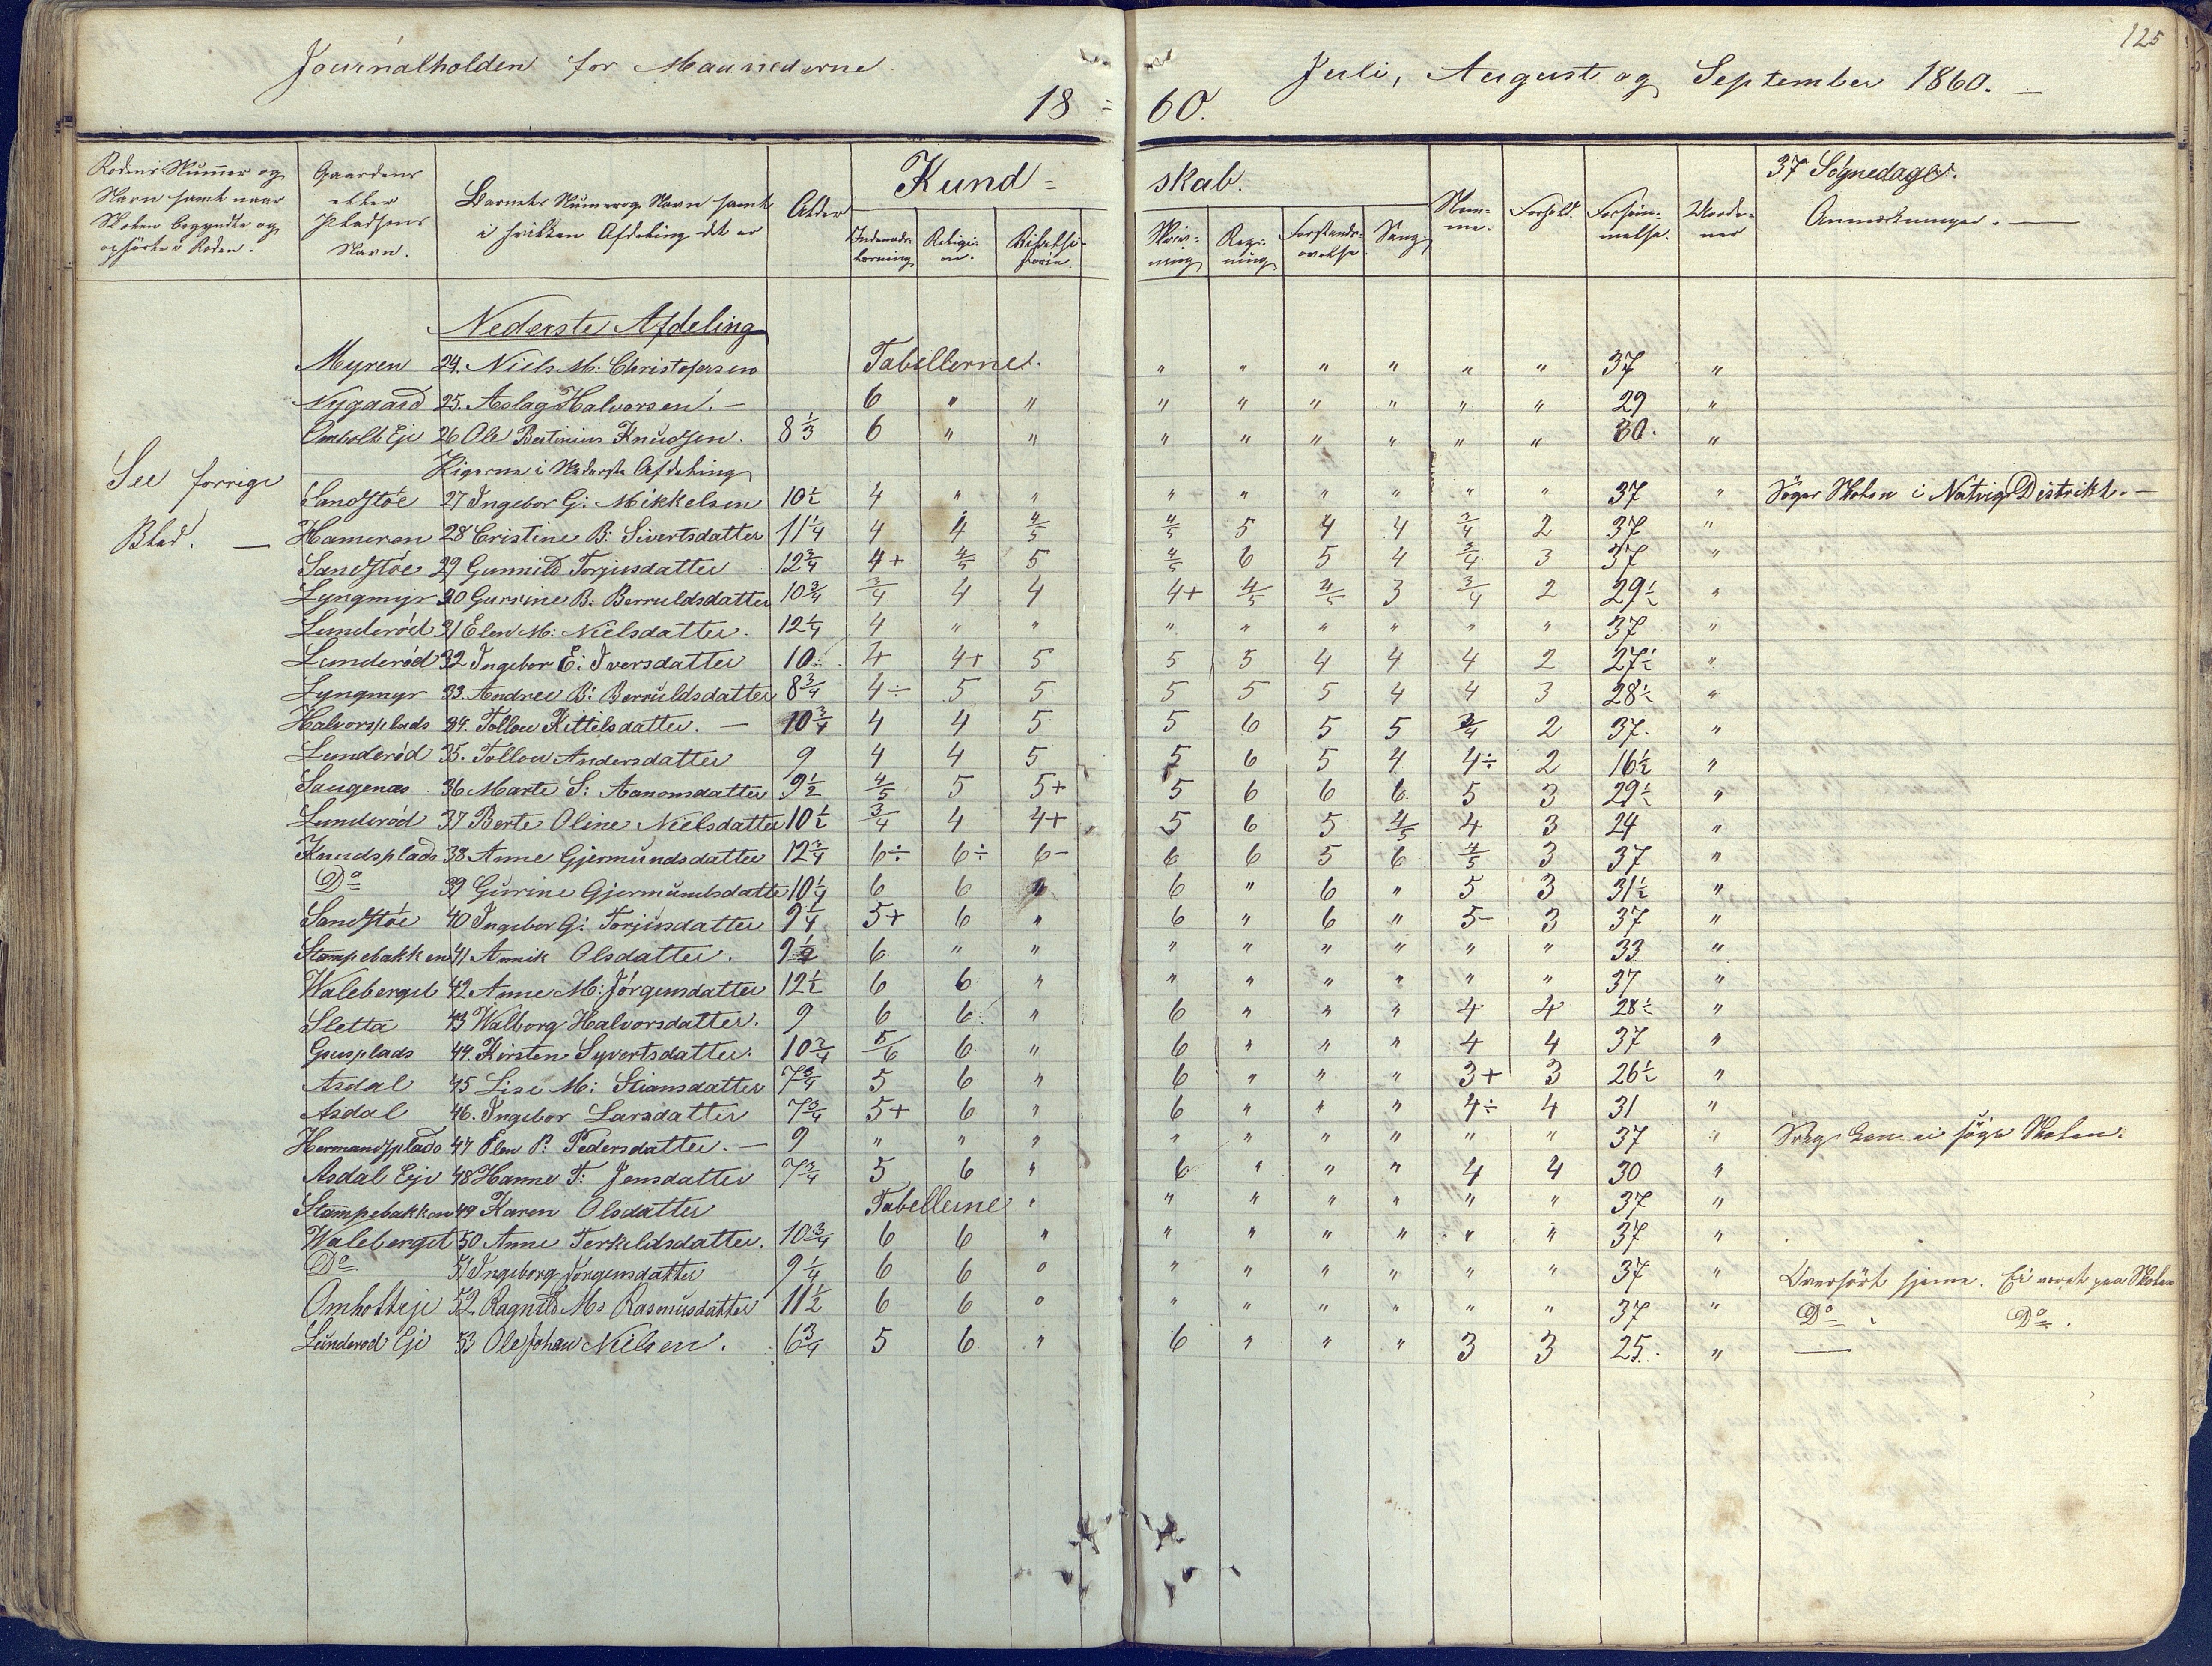 125
Journalholden for Maanederne Juli, August og September 1860. —
18 = 60.
Rodens Nummer og Navn samt naar Skolen begyndte og ophørte i Roden.
Gaardens eller Pladsens Navn.
Barnets Nummer og Navn samt i hvilken Afdeling det er
Alder
Kund = skab.
Indenads-læsning
Religi-on.
Bibelhi-storie.
Skriv-ning
Reg-ning
Forstands-øvelse
Sang
Nem-me.
Forhold.
Forsøm-melse.
37 Søgnedage.
Anmærkninger. —
Nederste Afdeling
Myren 24. Niels M: Christofersen Tabellerne. " " " " " " 37 "
Nygaard 25. Aslag Halvorsen. — 6 " " " " " " " " 29 "
Omholt Eje 26 Ole Bertinius Knudsen. 8 1/3 6 " " " " " " " " 30. "
Pigerne i Nederste Afdeling
See forrige Blad. —
Sandstöe 27 Ingebor G. Mikkelsen 10 1/2 4 " " " " " " " " 37 " Søger Skolen i Natvigs Distrikt. —
Hameren 28 Cristine B: Sivertsdatter 11 1/4 4 4 4/5 4/5 5 4 4 3/4 2 37 "
Sandstöe 29 Gunnild Torjusdatter 12 3/4 4+ 4/5 5 4/5 6 5 4 3/4 3 37 "
Lyngmyr 30 Gurine B: Berruldsdatter 10 3/4 3/4 4 4 4+ 4/5 4/5 3 3/4 2 29 1/2 "
Lunderöd 31 Elen M: Nielsdatter. 12 1/4 4 " " " " " " " " 37 "
Lunderöd 32 Ingebor E: Iversdatter 10. 4 4+ 5 5 5 4 4 4 2 27 1/2 "
Lyngmyr 33. Andrea B: Berruldsdatter 8 3/4 4÷ 5 5 5 5 5 4 4 3 28 1/2 "
Halvorsplads 34. Tollou Kittelsdatter. — 10 3/4 4 4 5 5 6 5 5 3/4 2 37. "
Lunderöd 35. Tollou Andersdatter 9 4 4 5 5 6 5 4 4÷ 2 16 1/2 "
Saugenæs 36 Marte S: Aanonsdatter 9 1/2 4/5 5 5+ 5 6 6 6 5 3 29 1/2 "
Lunderöd 37 Berte Oline Nielsdatter 10 1/2 3/4 4 4+ 5 6 5 4/5 4 3 24 "
Knudsplads 38 Anne Gjermundsdatter 12 3/4 6÷ 6÷ 6- 6 6 5 6 4/5 3 37 "
Do 39 Gurine Gjermundsdatte 10 1/4 6 6 " 6 " 6 " 5 3 31 1/2 "
Sandstöe 40 Ingebor G: Torjusdatter 9 1/4 5+ 6 " 6 " 6 " 5- 3 37 "
Stampebakken 41 Annik Olsdatter. 9 1/2 6 " " " " " " " " 33 "
Waleberget 42 Anne M: Jörgensdatter 12 1/2 6 6 " " " " " " " 37 "
Sletta 43 Walborg Halvorsdatter. 9 6 6 " 6 " " " 4 4 28 1/2 "
Gusplads 44. Kirsten Syvertsdatter. 10 3/4 5/6 6 " 6 " " " 4 4 37 "
Asdal 45 Lise M: Stiansdatter 7 3/4 5 6 " 6 " " " 3+ 3 26 1/2 "
Asdal 46. Ingebor Larsdatter 7 3/4 5+ 6 " 6 " " " 4÷ 4 31 "
Hermandsplads 47 Elen P: Pedersdatter. — 9 " " " " " " " " " 37 " Syg kan ei søge Skolen.
Asdal Eje 48 Hanne T: Jensdatter 7 3/4 5 6 " 6 " " " 4 4 30 "
Stampebakken 49 Karen Olsdatter Tabellerne " " " " " " " 37 "
Waleberget 50 Anne Terkeldsdatter. 10 3/4 6 6 " " " " " " " 37 "
Do 51 Ingeborg Jörgensdatter 9 1/4 6 6 " " " " " " " 37 " Overhørt hjeme. Ei været paa Skolen
Omholteje 52 Ragnild M: Rasmusdatter 11 1/2 6 6 " " " " " " " 37 " Do. Do.
Lunderod Eje 53 Ole Johan Nielsen. 6 3/4 5 6 " 6 " " " 3 3 25. " —